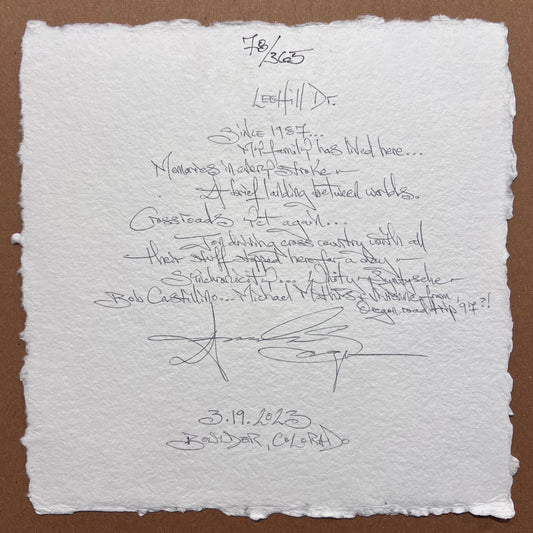 78/365
LeeHill Dr.
Since 1987...
My family has lived here...
Memories in every stroke ~
A brief landing between worlds.
Crossroads yet again...
driving cross country with all
their stuff stopped here for a day ~
Synchronicity?...
Bob Castillino... Michael Mathis from
Oregon road trip '97?!
3.19.2023
Boulder, Colorado